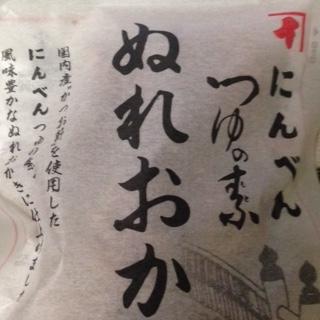 にんべん
つゆの素
ぬれおか
国内産かつお節を使用した
にんべんつゆの素
風味豊かなぬれおかき